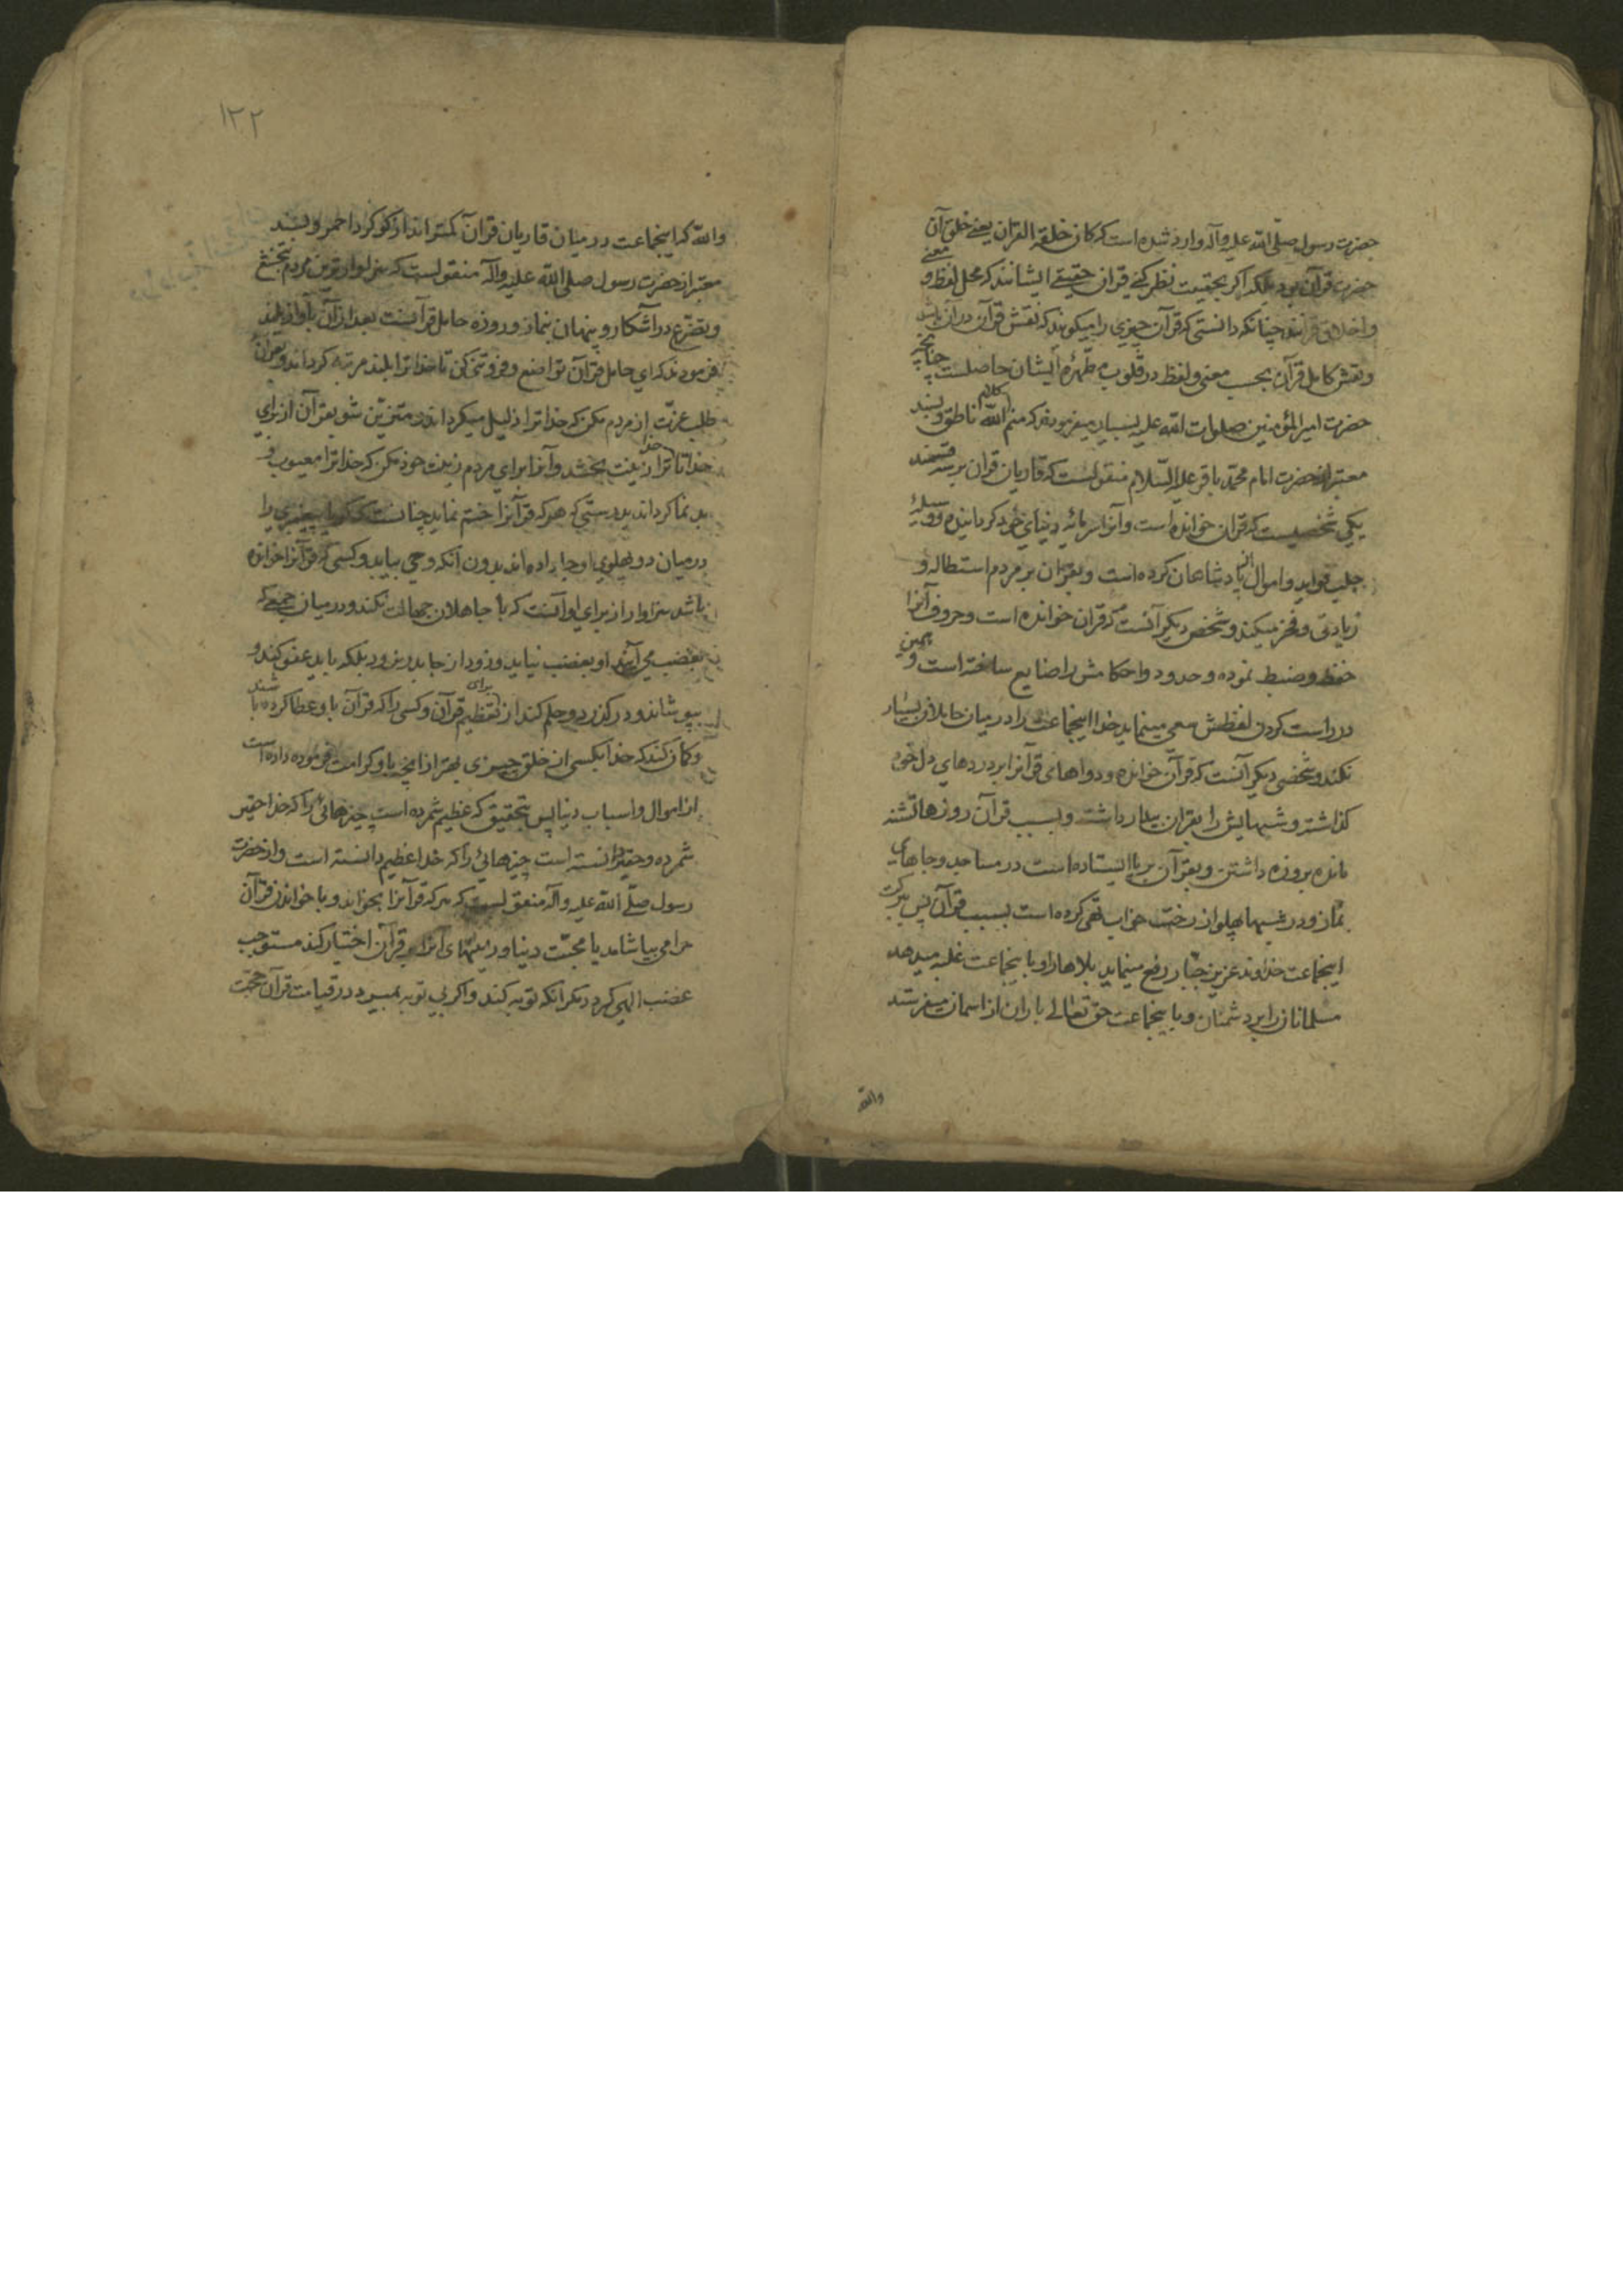 حضرت رسول صلّی الله علیه وآله وارد شده است که کان خلقه القران یعنے خلق آن
حضرت قرآن بود بلکه اکر بحقیقت نظر کنے قران حقیقے ایشانند که محل لفظ و معنے
واخلاق قرآنند چنانکه دانستی که قرآن چیزی را میکویند که نقش قرآن در آن باشد
ونقش کامل قرآن بحسب معنی ولفظ در قلوب مطهرهٔ ایشان حاصلست چنانچه
حضرت امیرالمؤمنین صلوات الله علیه بسیار میفرمودند که منم کلام الله ناطق وبسند
معتبر از حضرت امام محمّد باقر علیه السّلام منقولست که قاریان قران بر سه قسمند
یکی شخصیست که قران خوانده است وآنرا سرمایه دنیای خود کردانیده ووسیلهٔ
جلب فواید واموال از پادشاهان کرده است وبقران بر مردم استطاله و
زیادتی وفخر میکند وشخص دیکر آنست که قران خوانده است وحروف آنرا
حفظ وضبط نموده وحدود واحکامش را ضایع ساخته است وهمین
در راست کردن لفظش سعی مینماید خدا اینجماعت را در میان حاملان بسیار
نکند وشخصی دیکر آنست که قرآن خوانده ودواهای قرآنرا بر دردهای دل خود
کذاشته وشبهایش را بقران بیدار داشته وبسبب قرآن روزها تشنه
مانده بروزه داشتن وبقرآن برپا ایستاده است در مساجد وجاهای
نماز ودر شبها پهلو از رخت خواب تهی کرده است بسبب قرآن پس ببرکت
اینجماعت خداوند عزیز جبّار دفع مینماید بلاها را وباینجماعت غلبه میدهد
مسلمانان را بر دشمنان وباینجماعت حق تعالے باران از اسمان میفرستد
والله
۱۲۲
والله که اینجماعت در میان قاریان قرآن کمتراند از کوکرد احمر وبسند
معتبر از حضرت رسول صلی الله علیه وآله منقولست که سزاوارترین مردم بتخشع
وتضرّع در آشکار وپنهان بنماز وروزه حامل قرآنست بعد از آن بآواز بلند
فرمودند که ای حامل قرآن تواضع وفروتنی کن تا خدا ترا بلند مرتبه کرداند وبقرآن
طلب عزّت از مردم مکن که خدا ترا ذلیل میکرداند ومتزیّن شو بقرآن از برای
خدا تا خدا ترا زینت بخشد وآنرا برای مردم زینت خود مکن که خدا ترا معیوب و
بدنما کرداند بدرستی که هرکه قرآنرا ختم نماید چنانست که کویا پیغمبری را
در میان دو پهلوی او جا داده اند بدون آنکه وحی بیاید وکسی که قرآنرا خوانده
باشد سزاوار از برای او آنست که با جاهلان جهالت نکند ودر میان جمعے که
بغضب می آیند او بغضب نیاید وزود از جا بدر نرود بلکه باید عفو کند و
بپوشاند ودرکذرد وحلم کند از برای تعظیم قرآن وکسی را که قرآن باو عطا کرده باشند
وکمان کند که خدا بکسی از خلق چیزی بهتر از آنچه باو کرامت فرموده داده است
از اموال واسباب دنیا پس بتحقیق که عظیم شمرده است چیزهائی را که خدا حقیر
شمرده وحقیر دانسته است چیزهائی را که خدا عظیم دانسته است واز حضرت
رسول صلّے الله علیه وآله منقولست که هرکه قرآنرا بخواند وبا خواندن قرآن
حرامی بیاشامد یا محبّت دنیا وزینتهای آنرا بر قرآن اختیار کند مستوجب
غضب الهی کردد مکر آنکه توبه کند واکر بی توبه بمیرد در قیامت قرآن حجّت